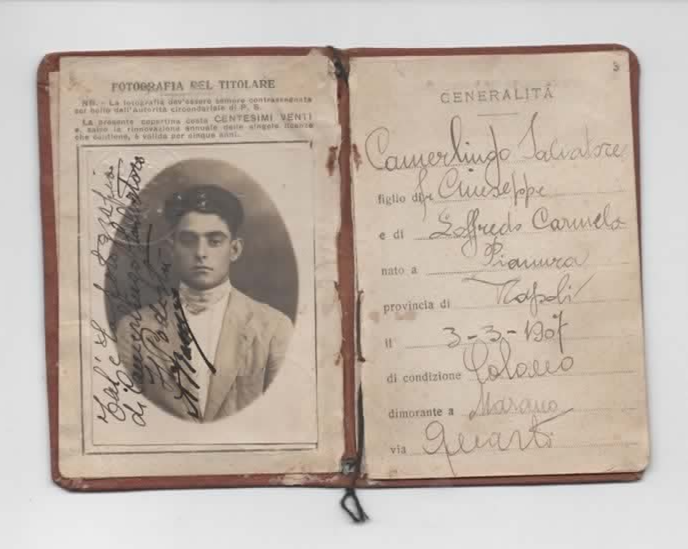 FOTOGRAFIA DEL TITOLARE
NB. - La fotografia dev'essere sempre contrassegnata
col bollo dell'autorità circondariale di P. S.
La presente copertina costa CENTESIMI VENTI
e, salvo la rinnovazione annuale delle singole licenze
che contiene, è valida per cinque anni.
di Camerlingo Salvatore
3
GENERALITÀ
Camerlingo Salvatore
figlio di Giuseppe
e di Loffredo Carmela
nato a Pianura
provincia di Napoli
il 3-3-1907
di condizione Colono
dimorante a Marano
via Quarto